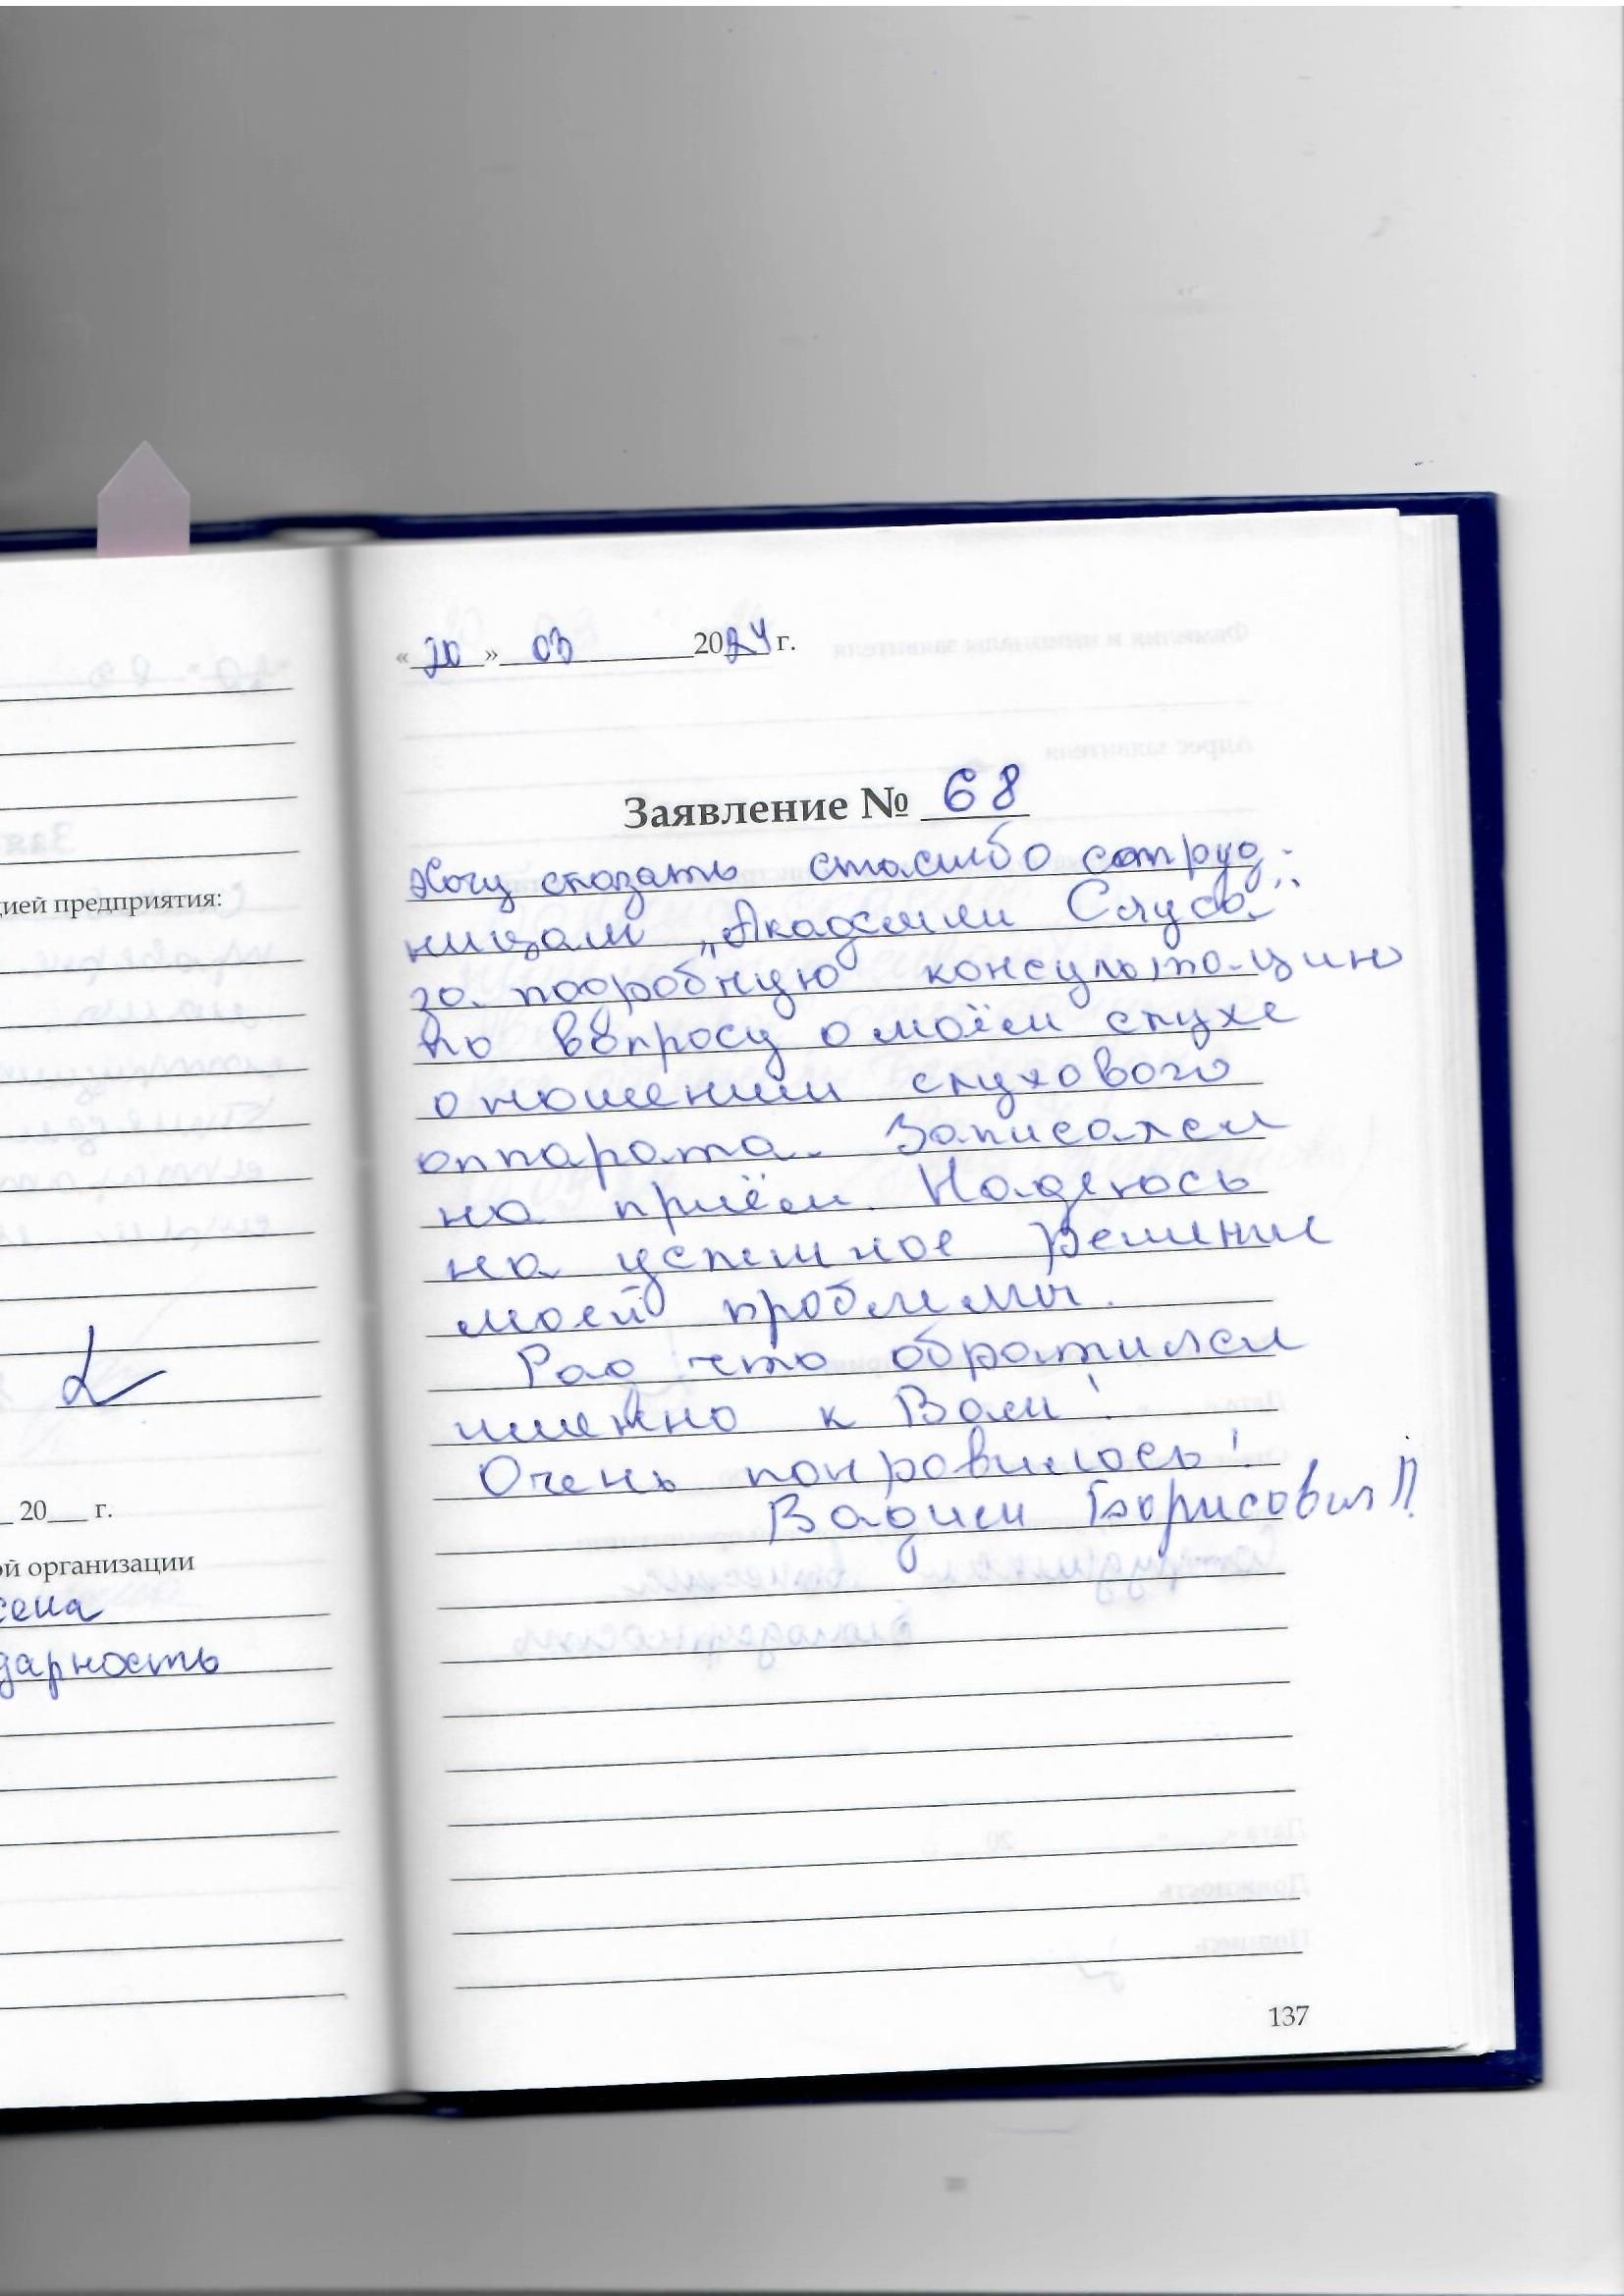 цией предприятия:
20 г.
ой организации
сена
дарность
« 20 » 03 2024 г.
Заявление № 68
Хочу сказать спасибо сотруд-
ницам „Академии Слуха"
за подробную консультацию
по вопросу о моём слухе
отношении слухового
аппарата. Записался
на приём. Надеюсь
на успешное решение
моей проблемы.
Рад что обратился
именно к Вам!
Очень понравилось!
Вадим Борисович!!
137